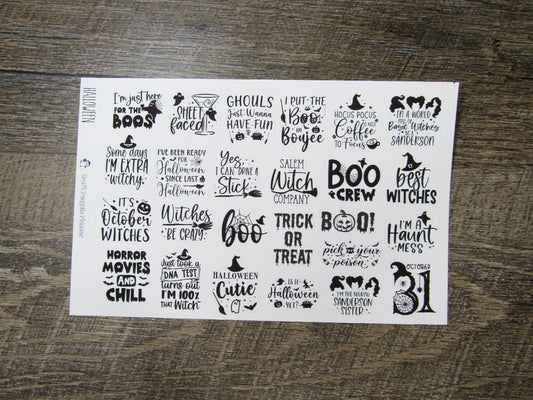 HALLOWEEN
I'm just here
FOR THE
BOOS
SHEET
faced
GHOULS
Just Wanna
HAVE FUN
I PUT THE
Boo
IN
Boujee
HOCUS POCUS
I NEED
Coffee
TO FOCUS
I'M A WORLD
FULL OF
Basic Witches
BE A
SANDERSON
Some days
I'M EXTRA
witchy.
I'VE BEEN READY
FOR
Halloween
SINCE LAST
Halloween
Yes,
I CAN DRIVE A
Stick
SALEM
Witch
COMPANY
BOO
CREW
best
WITCHES
IT'S
October
WITCHES
Witches
BE CRAZY
boo
TRICK
OR
TREAT
BOO!
pick your
poison
I'M A
Haunt
MESS
HORROR
MOVIES
AND
CHILL
Just took a
DNA TEST
turns out
I'M 100%
THAT Witch
HALLOWEEN
Cutie
IS IT
Halloween
YET?
I'M THE FOURTH
SANDERSON
SISTER
OCTOBER
31